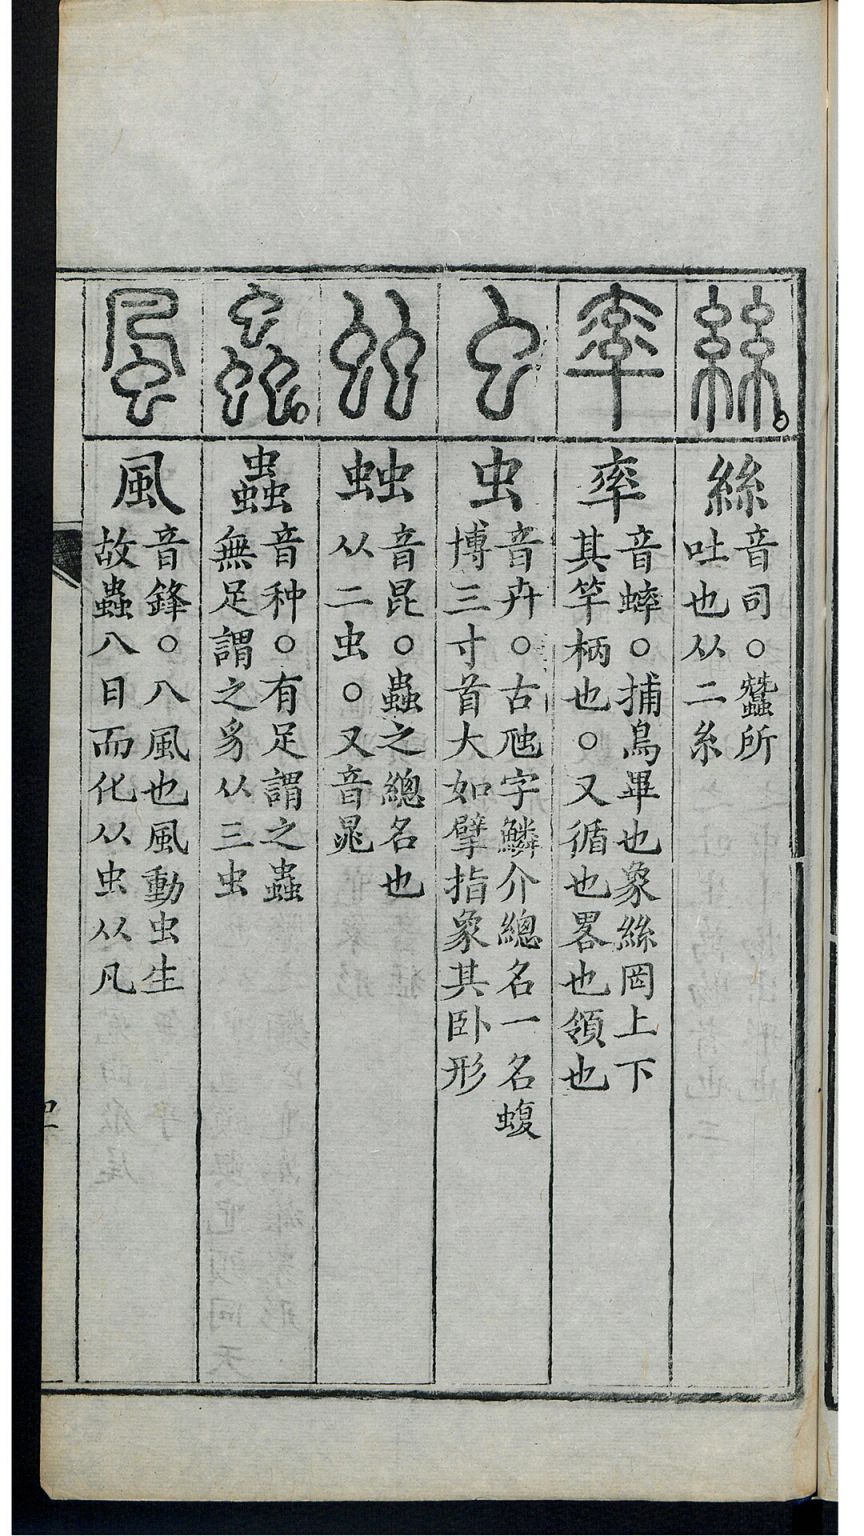 絲 音司○蠶所
吐也从二糸
率 音蟀○捕鳥畢也象絲罔上下
其竿柄也○又循也畧也領也
虫 音卉○古虺字鱗介總名一名蝮
博三寸首大如擘指象其卧形
䖵 音昆○蟲之總名也
从二虫○又音晁
蟲 音种○有足謂之蟲
無足謂之豸从三虫
風 音鋒○八風也風動虫生
故蟲八日而化从虫从凡